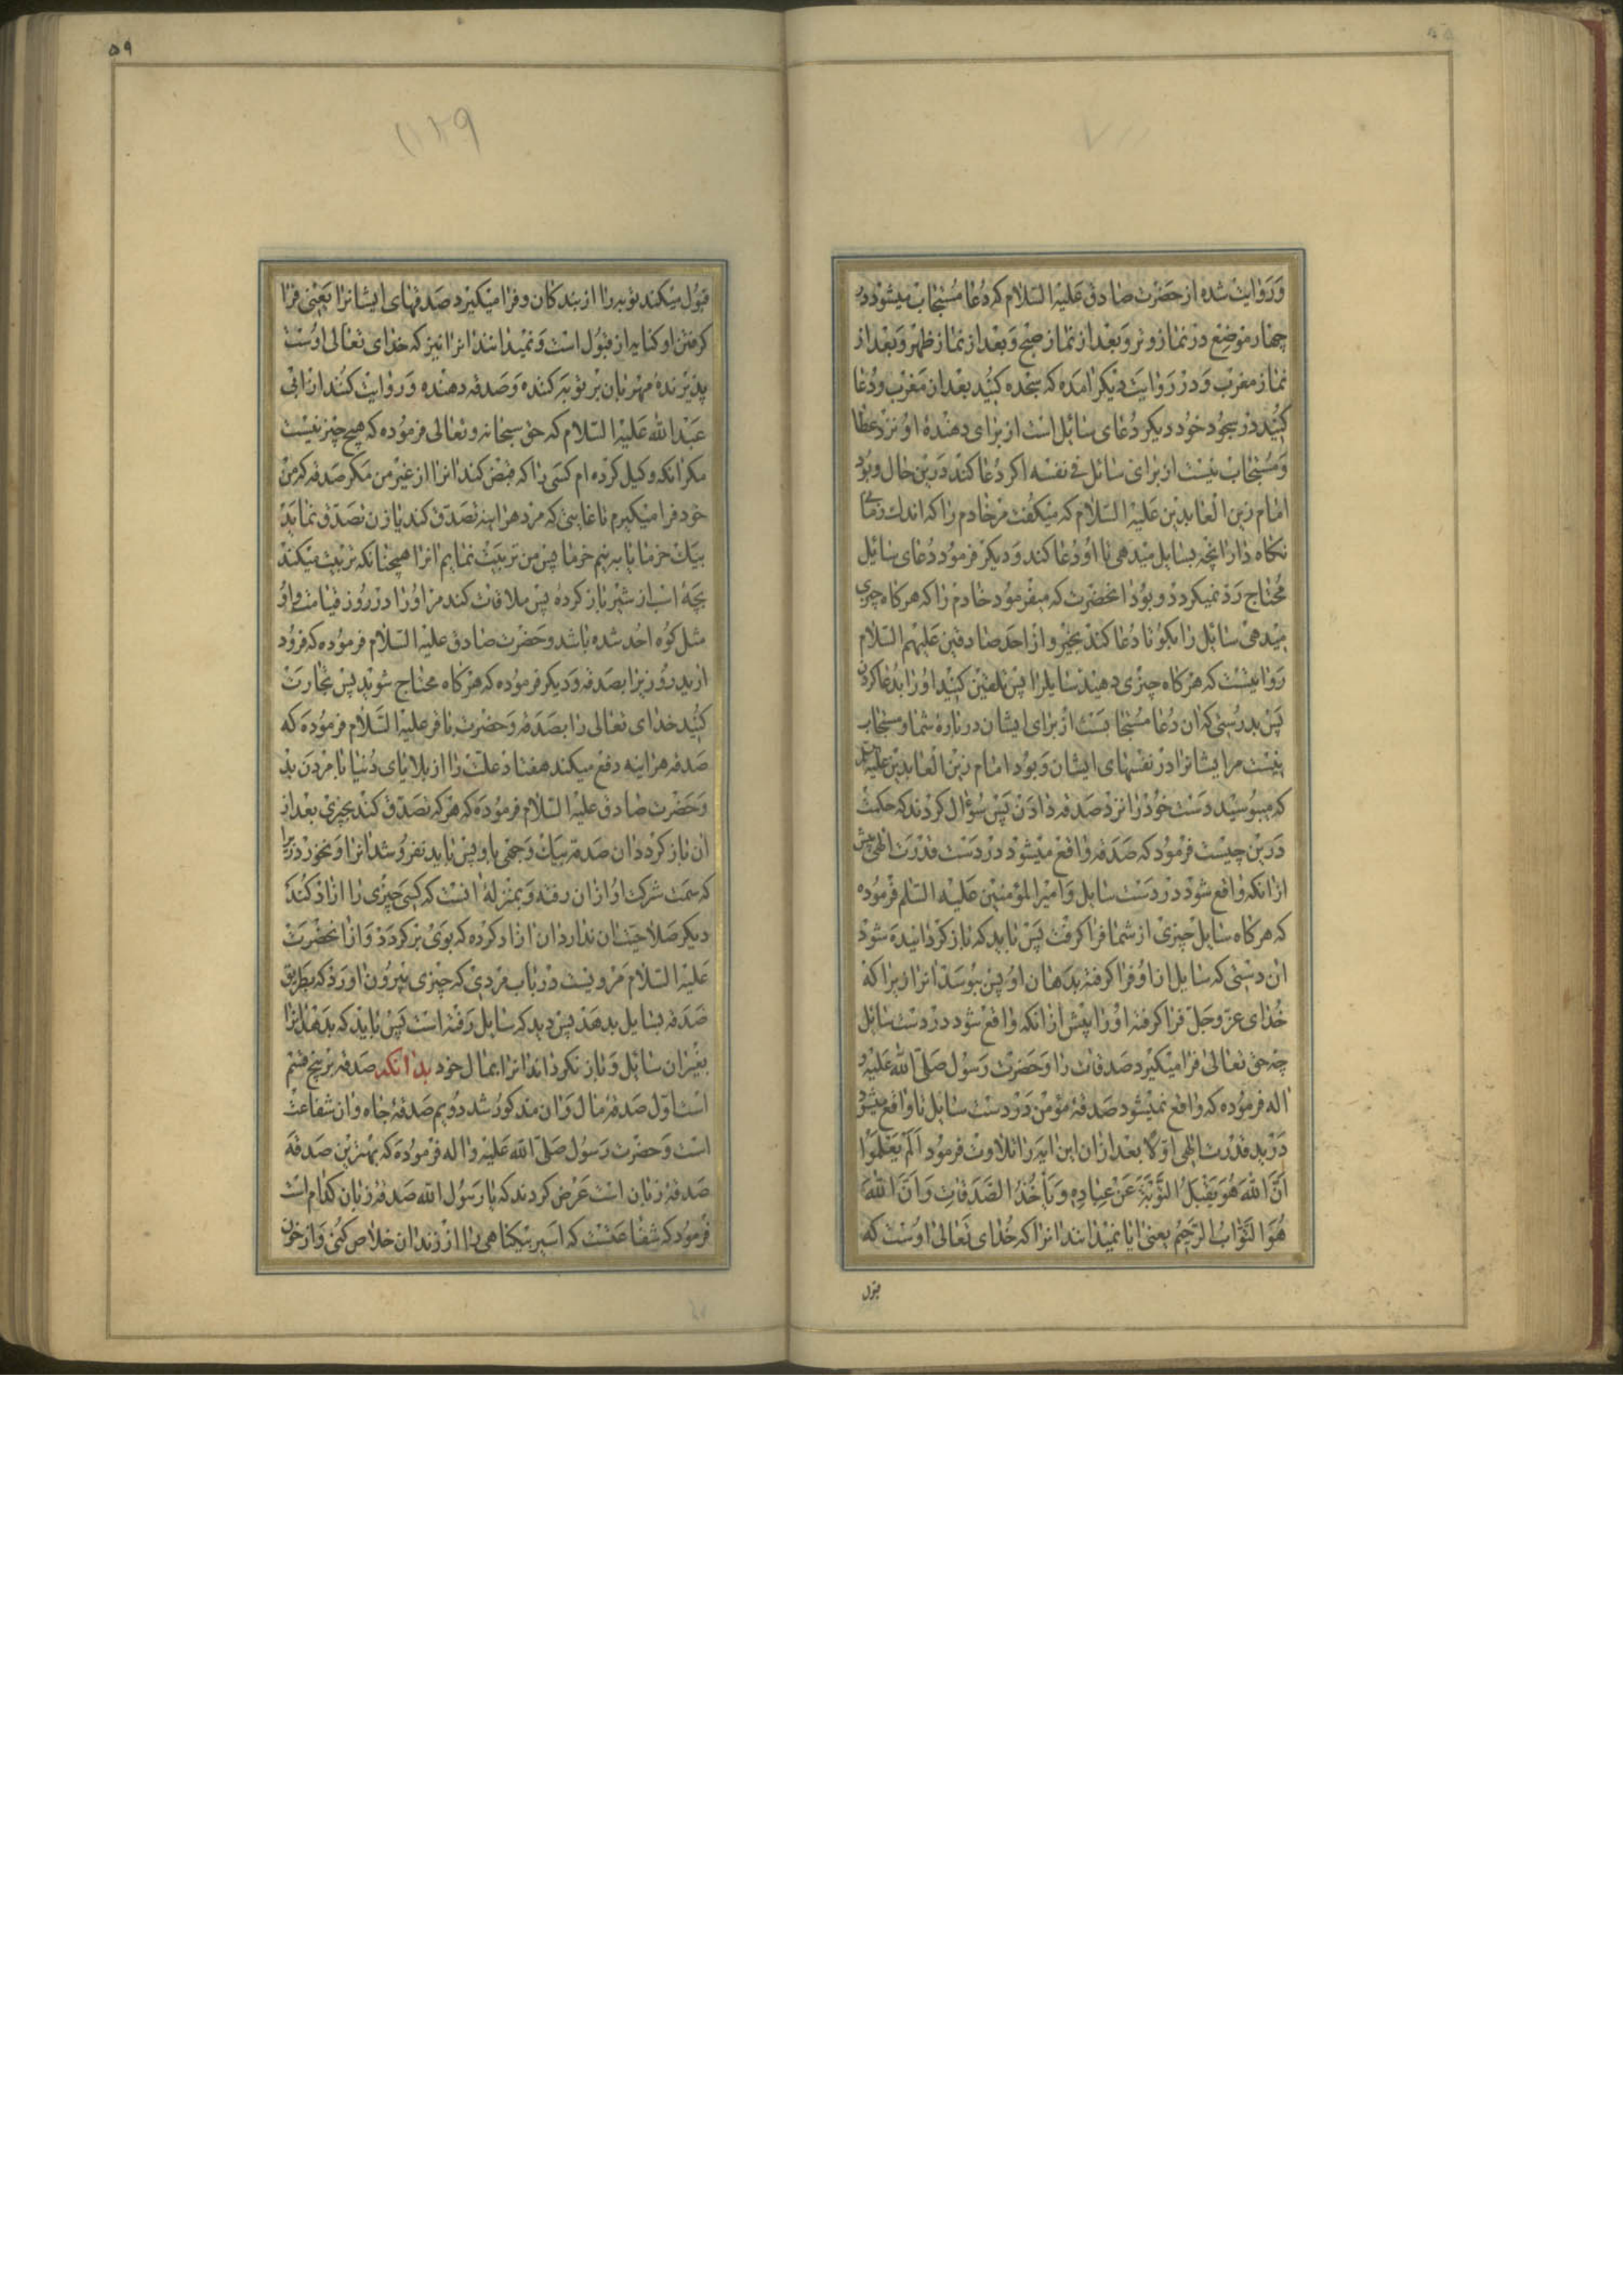 وروایت شده از حضرت صادق علیه السلام که دعا مستجاب میشود در
چهار موضع در نماز وتر و بعد از نماز صبح و بعد از نماز ظهر و بعد از
نماز مغرب و در روایت دیکر امده که سجده کنید بعد از مغرب و دعا
کنید در سجود خود دیکر دعای سائل است از برای دهندهٔ او نزد عطا
و مستجاب نیست از برای سائل فی نفسه اکر دعا کند در ین حال و بود
امام زین العابدین علیه السلام که میکفت مر خادم را که اندک زمانی
نکاه دار انچه بسایل میدهی تا او دعا کند و دیکر فرمود دعای سائل
محتاج رد نمیکردد و بود انحضرت که میفرمود خادم را که هر کاه چیزی
میدهی سائل را بکو تا دعا کند بخیر و از احد صادقین علیهم السلام
روایتست که هر کاه چیزی دهیند سایلرا پس تلقین کنید او را بدعا کردن
پس بدرستی که ان دعا مستجابست از برای ایشان در بارهٔ شما و مستجاب
نیست مر ایشانرا در نفسهای ایشان و بود امام زین العابدین علیه السلام
که میبوسید دست خود را نزد صدقه دادن پس سؤال کردند که حکمت
درین چیست فرمود که صدقه واقع میشود در دست قدرت الهی پیش
از انکه واقع شود در دست سایل و امیرالمؤمنین علیه السلم فرموده
که هر کاه سایل چیزی از شما فرا کرفت پس باید که باز کردانیده شود
ان دستی که سایل از او فرا کرفته بدهان او پس ببوسد انرا زیرا که
خدای عز و جل فرا کرفته او را پیش از انکه واقع شود در دست سائل
چه حق تعالی فرا میکیرد صدقات را و حضرت رسول صلی الله علیه و
اله فرموده که واقع نمیشود صدقهٔ مؤمن در دست سایل تا واقع میشود
در ید قدرت الهی اولا بعد از ان این ایه را تلاوت فرمود الم یعلموا
ان الله هو یقبل التوبة عن عباده و یاخذ الصدقات و ان الله
هو التواب الرحیم یعنی ایا نمیدانند انرا که خدای تعالی اوست که
قبول
۵۹
قبول میکند توبه را از بندکان و فرا میکیرد صدقهای ایشانرا یعنی فرا
کرفتن او کنایه از قبول است و نمیدانند انرا نیز که خدای تعالی اوست
پذیرندهٔ مهربان بر توبه کننده و صدقه دهنده و روایت کنند از ابی
عبدالله علیه السلام که حق سبحانه و تعالی فرموده که هیچ چیز نیست
مکر انکه وکیل کرده ام کسی را که قبض کند انرا از غیر من مکر صدقه که من
خود فرا میکیرم تا غایتی که مرد هراینه تصدق کند یا زن تصدق نماید
بیک خرما یا به نیم خرما پس من تربیت نمایم انرا همچنانکه تربیت میکند
بچهٔ اسب از شیر باز کرده پس ملاقات کند مر او را در روز قیامت و او
مثل کوه احد شده باشد و حضرت صادق علیه السلام فرموده که فرود
ارید روزیرا بصدقه و دیکر فرموده که هر کاه محتاج شوید پس تجارت
کنید خدای تعالی را بصدقه و حضرت باقر علیه السلام فرموده که
صدقه هراینه دفع میکند هفتاد علت را از بلایای دنیا با مردن بد
و حضرت صادق علیه السلام فرموده که هر که تصدق کند بچیزی بعد از
ان باز کردد ان صدقه بیک وجهی باو پس باید نفروشد انرا و نخورد زیرا
که سمت شرکت او از ان رفته و بمنزلهٔ انست که کسی چیزی را ازاد کند
دیکر صلاحیت ان ندارد ان ازاد کرده که بوی بر کردد و از انحضرت
علیه السلام مرویست در باب مردی که چیزی بیرون اورد که بطریق
صدقه بسایل بدهد پس دید که سایل رفته است پس باید که بدهد انرا
بغیر ان سائل و باز نکرداند انرا بمال خود بدانکه صدقه بر پنج قسم
است اول صدقهٔ مال و ان مذکور شد دویم صدقهٔ جاه و ان شفاعت
است و حضرت رسول صلی الله علیه و اله فرموده که بهترین صدقه
صدقهٔ زبان است عرض کردند که یا رسول الله صدقهٔ زبان کدام است
فرمود که شفاعتست که اسیر بیکناهی را از زندان خلاص کنی و از خون